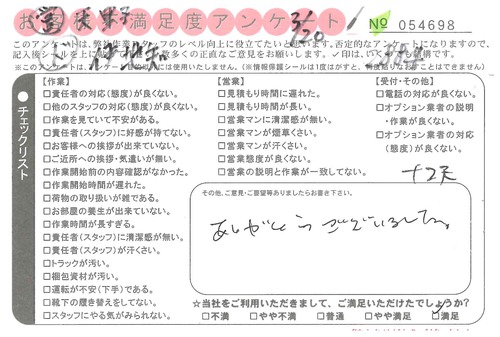 お客様満足度アンケート
3/20
No 054698
このアンケートは、弊社作業スタッフのレベル向上に役立てたいと思います。否定的なアンケートになりますので、
※このアンケートは、
(※情報保護シールは1度はがすと、
チェックリスト
【作業】
□責任者の対応(態度)が良くない。
□他のスタッフの対応(態度)が良くない。
□作業を見ていて不安がある。
□責任者(スタッフ)に好感が持てない。
□お客様への挨拶が出来ていない。
□ご近所への挨拶・気遣いが無い。
□作業開始前の内容確認がなかった。
□作業開始時間が遅れた。
□荷物の取り扱いが雑である。
□お部屋の養生が出来ていない。
□作業時間が長すぎる。
□責任者(スタッフ)に清潔感が無い。
□責任者(スタッフ)が汗くさい。
□トラックが汚い。
□梱包資材が汚い。
□運転が不安(下手)である。
□靴下の履き替えをしてない。
□スタッフにやる気がみられない。
【営業】
□見積もり時間に遅れた。
□見積もり時間が長い。
□営業マンに清潔感が無い。
□営業マンが煙草くさい。
□営業マンが汗くさい。
□営業態度が良くない。
□営業の説明と作業が一致してない。
【受付・その他】
□電話の対応が良くない。
□オプション業者の説明
・作業が良くない。
□オプション業者の対応
(態度)が良くない。
その他、ご意見・ご要望等ありましたらお書き下さい。
ありがとうございました。
☆当社をご利用いただきまして、ご満足いただけたでしょうか?
□不満 □やや不満 □普通 □やや満足 □満足